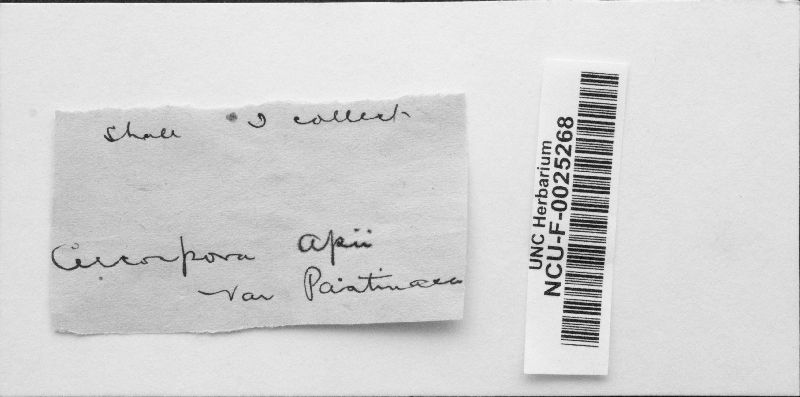 Shall I collect
Cercospora Apii
var Pastinaca
UNC Herbarium
NCU-F-0025268